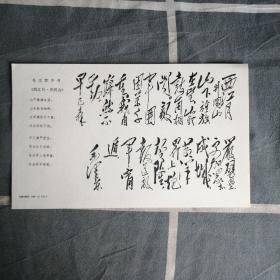 毛主席手书
《西江月·井冈山》
山下旌旗在望,
山头鼓角相闻。
敌军围困万千重,
我自岿然不动。
早已森严壁垒,
更加众志成城。
黄洋界上炮声隆,
报道敌军宵遁。
西江月
井冈山
山下旌旗
在望山头
鼓角相
闻敌
军围
困万千
重我自
岿然不
动
早已森
严壁垒
更加众志
成城
黄洋
界上炮
声隆
报道敌
军宵
遁
毛泽东